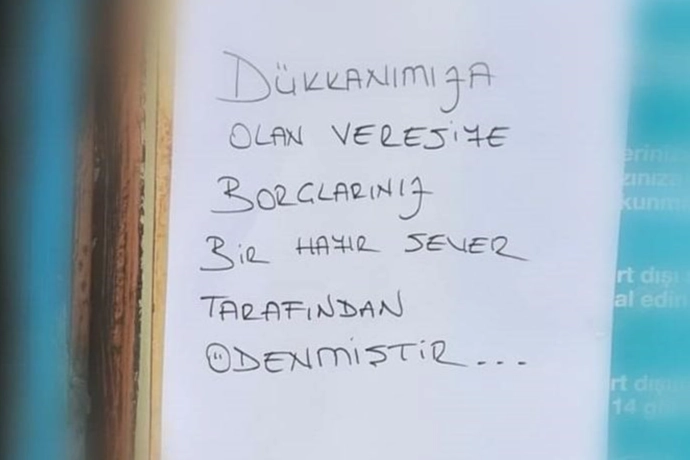 DÜKKANIMIZA
OLAN VERESİYE
BORÇLARINIZ
BİR HAYIR SEVER
TARAFINDAN
ÖDENMİŞTİR...
kunma
rt dışı
al edin
rt dışı
14 g